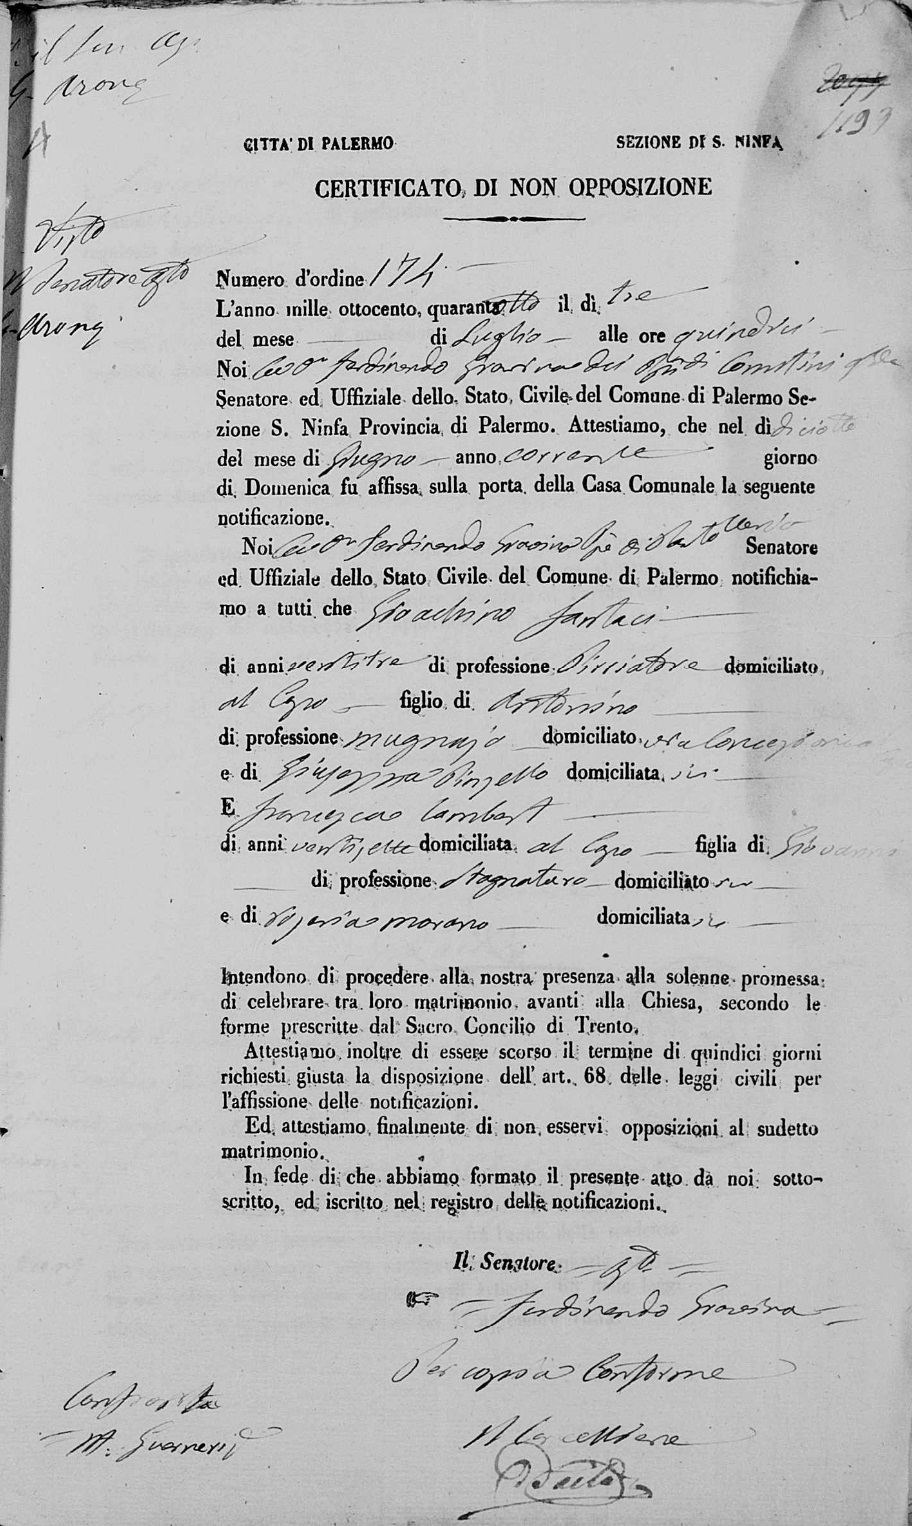 Arong
1193
CITTA' DI PALERMO
SEZIONE DI S. NINFA
CERTIFICATO DI NON OPPOSIZIONE
Visto
Il Senatore
Arong
Numero d'ordine 174
L'anno mille ottocento quarantotto il dì tre
del mese di Luglio alle ore quindici
Noi Ferdinando Gravina dei
Senatore ed Uffiziale dello Stato Civile del Comune di Palermo Se-
zione S. Ninfa Provincia di Palermo. Attestiamo, che nel dì diciotto
del mese di Giugno anno corrente giorno
di Domenica fu affissa sulla porta della Casa Comunale la seguente
notificazione.
Noi Ferdinando Gravina Senatore
ed Uffiziale dello Stato Civile del Comune di Palermo notifichia-
mo a tutti che Gioachino Fantaci
di anni ventitre di professione domiciliato
al Capo figlio di Antonino
di professione mugnajo domiciliato via Concezione
e di Giuseppa Pinzello domiciliata ivi
E Francesca Lambert
di anni ventisette domiciliata al Capo figlia di Giovanni
di professione Stagnataro domiciliato ivi
e di Rosaria Morano domiciliata ivi
Intendono di procedere alla nostra presenza alla solenne promessa
di celebrare tra loro matrimonio avanti alla Chiesa, secondo le
forme prescritte dal Sacro Concilio di Trento.
Attestiamo inoltre di essere scorso il termine di quindici giorni
richiesti giusta la disposizione dell' art. 68 delle leggi civili per
l'affissione delle notificazioni.
Ed attestiamo finalmente di non esservi opposizioni al sudetto
matrimonio.
In fede di che abbiamo formato il presente atto da noi sotto-
scritto, ed iscritto nel registro delle notificazioni.
Il Senatore
Ferdinando Gravina
Per copia Conforme
Il Cancelliere